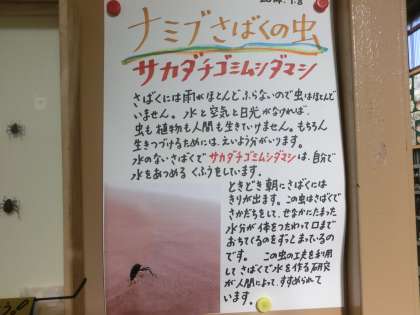 2014.1.8
ナミブさばくの虫
サカダチゴミムシダマシ
さばくには雨がほとんどふらないので虫はほとんど
いません。水と空気と日光がなければ、
虫も植物も人間も生きていけません。もちろん
生きつづけるためには、えいよう分がいります。
水のないさばくでサカダチゴミムシダマシは、自分で
水をあつめるくふうをしています。
ときどき朝にさばくには
きりが出ます。この虫はさばくで
さかだちをして、せなかにたまった
水分が体をつたわって口まで
おちてくるのをずっとまっているの
です。この虫の工夫を利用
してさばくで水を作る研究
が人間によって、すすめられて
います。